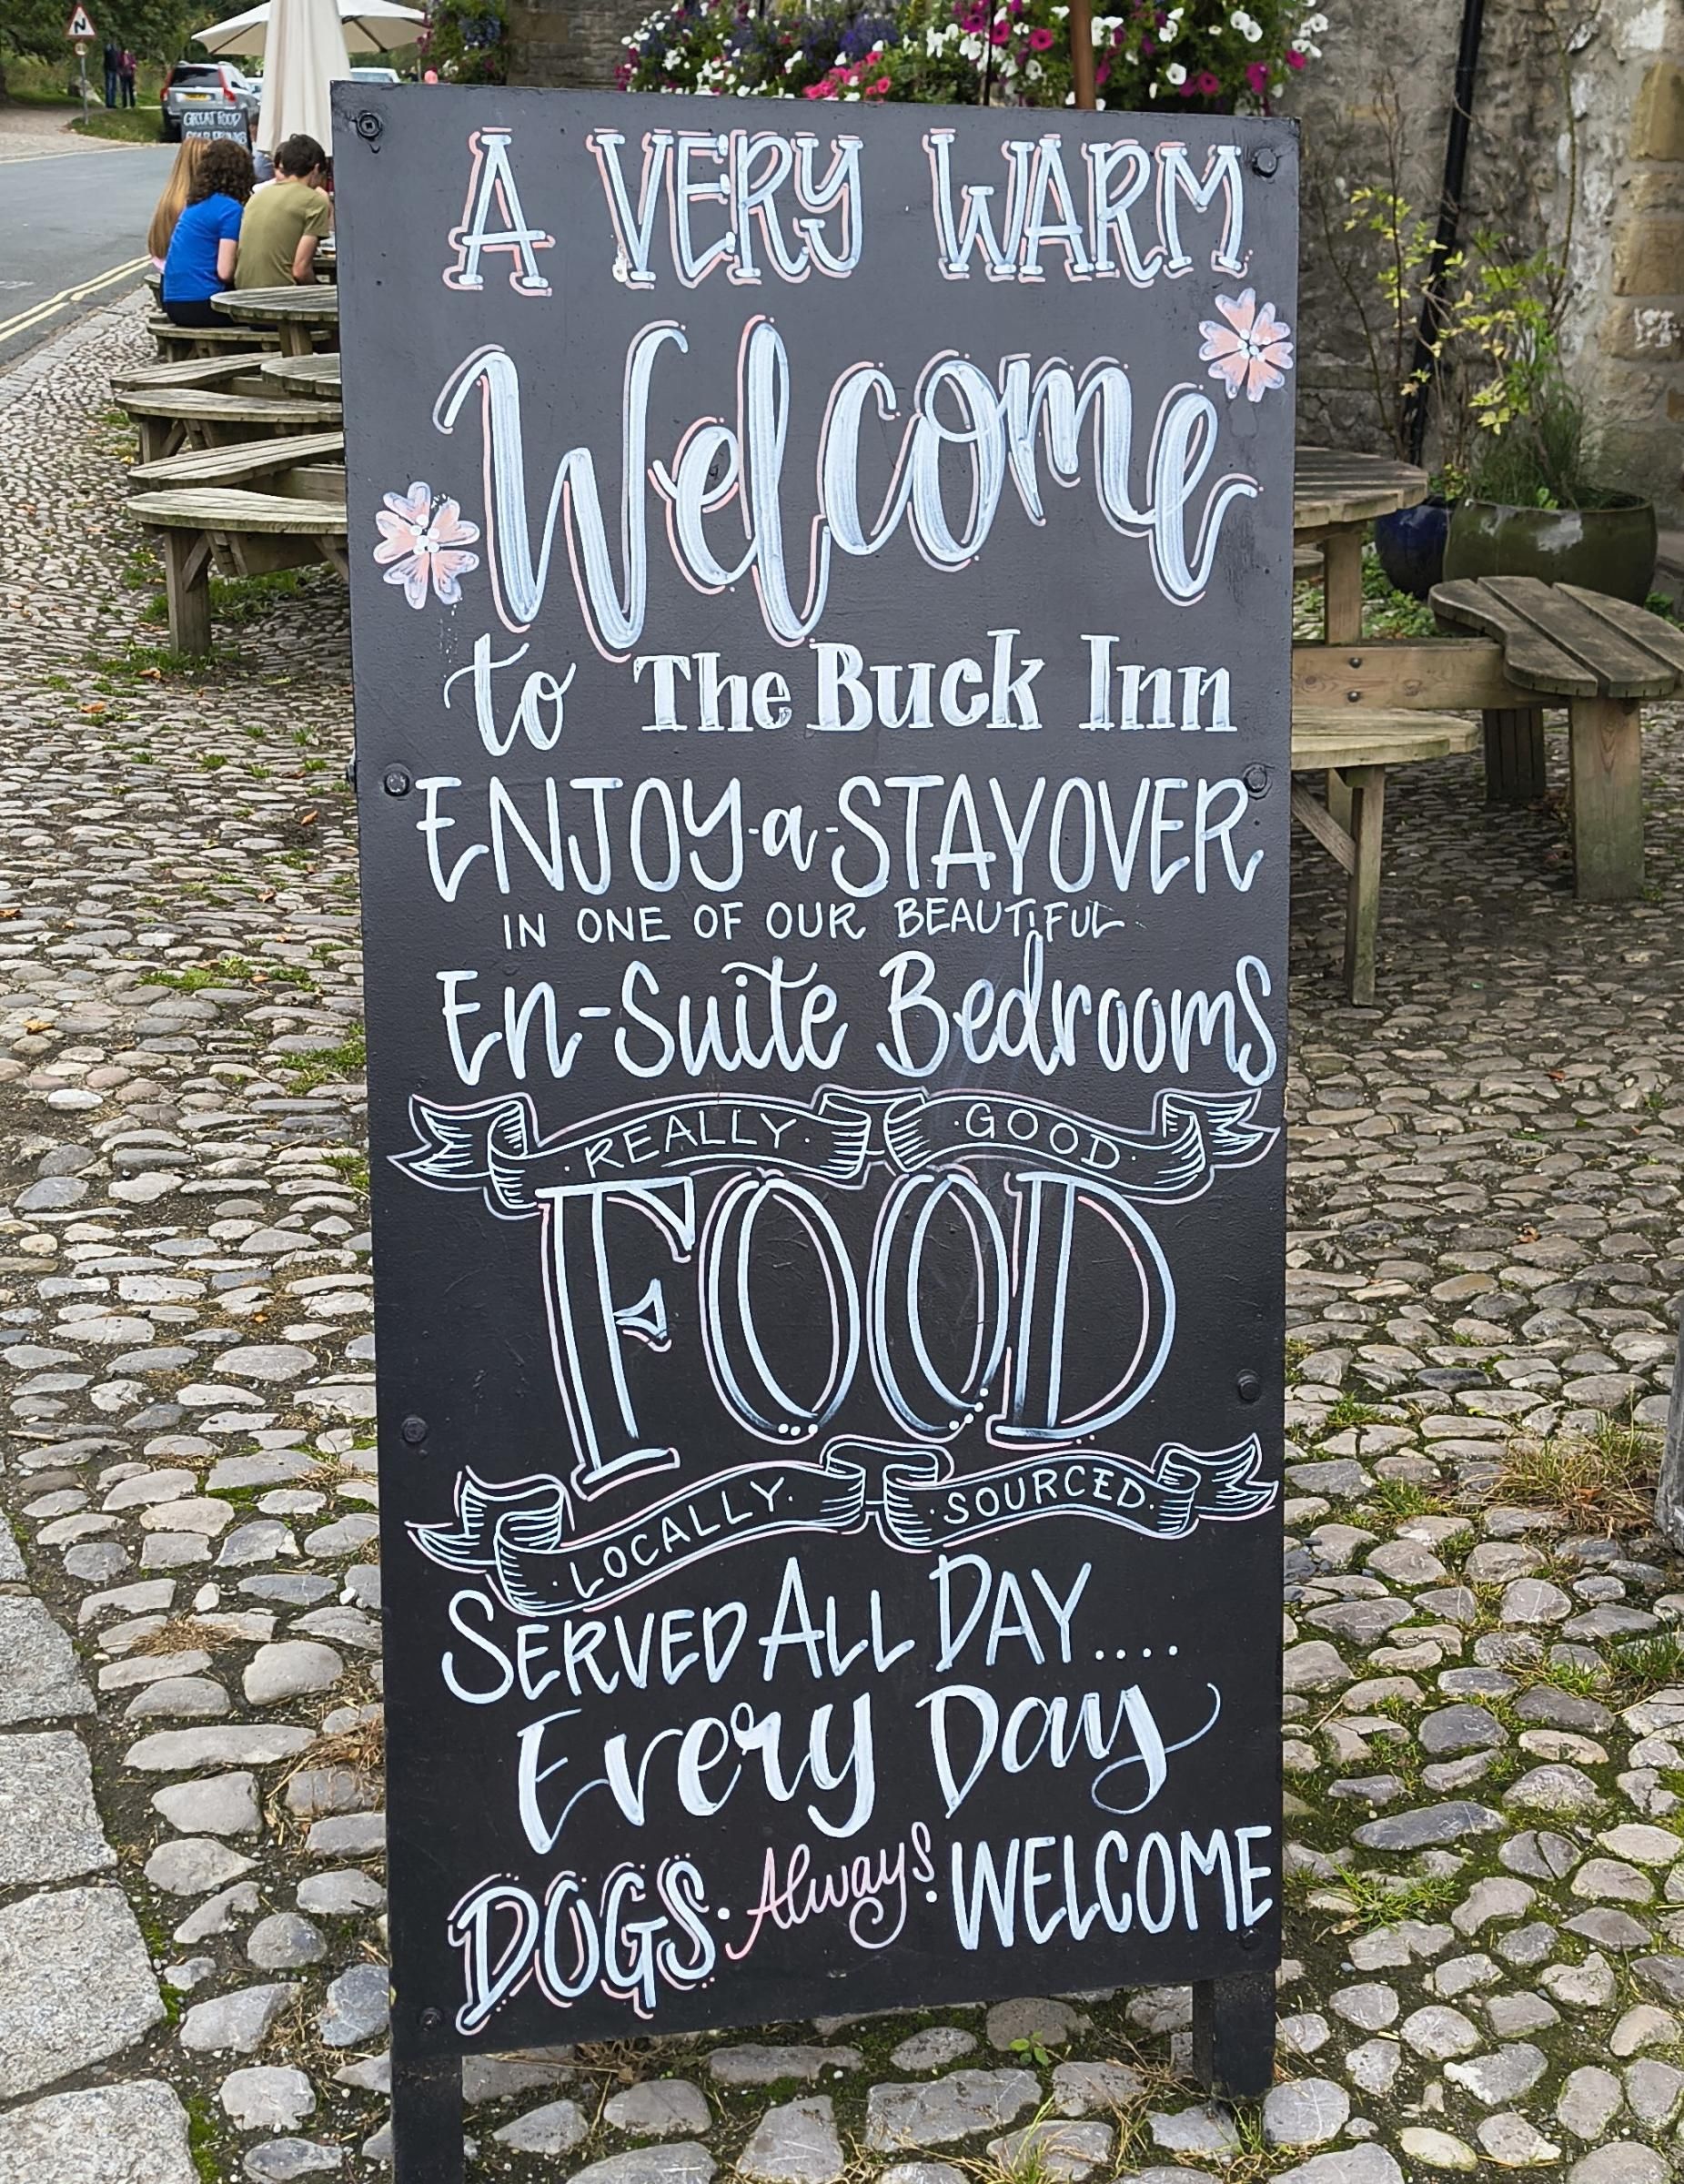 A VERY WARM
Welcome
to The Buck Inn
ENJOY-a-STAYOVER
IN ONE OF OUR BEAUTIFUL
En-Suite Bedrooms
·REALLY· ·GOOD·
FOOD
·LOCALLY· ·SOURCED·
SERVED ALL DAY....
Every Day
DOGS·Always·WELCOME
GREAT FOOD